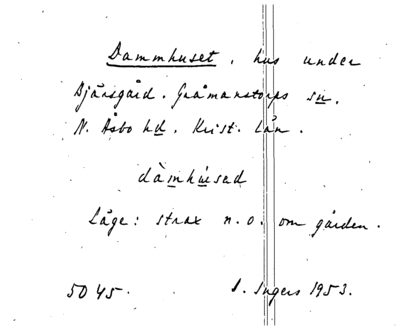 Dammhuset, hus under
Djäknagård. Gråmanstorps sn.
N. Åsbo hd. Krist. län.
dàmhúsad
Läge: strax n.o. om gården.
5045. I. Ingers 1953.